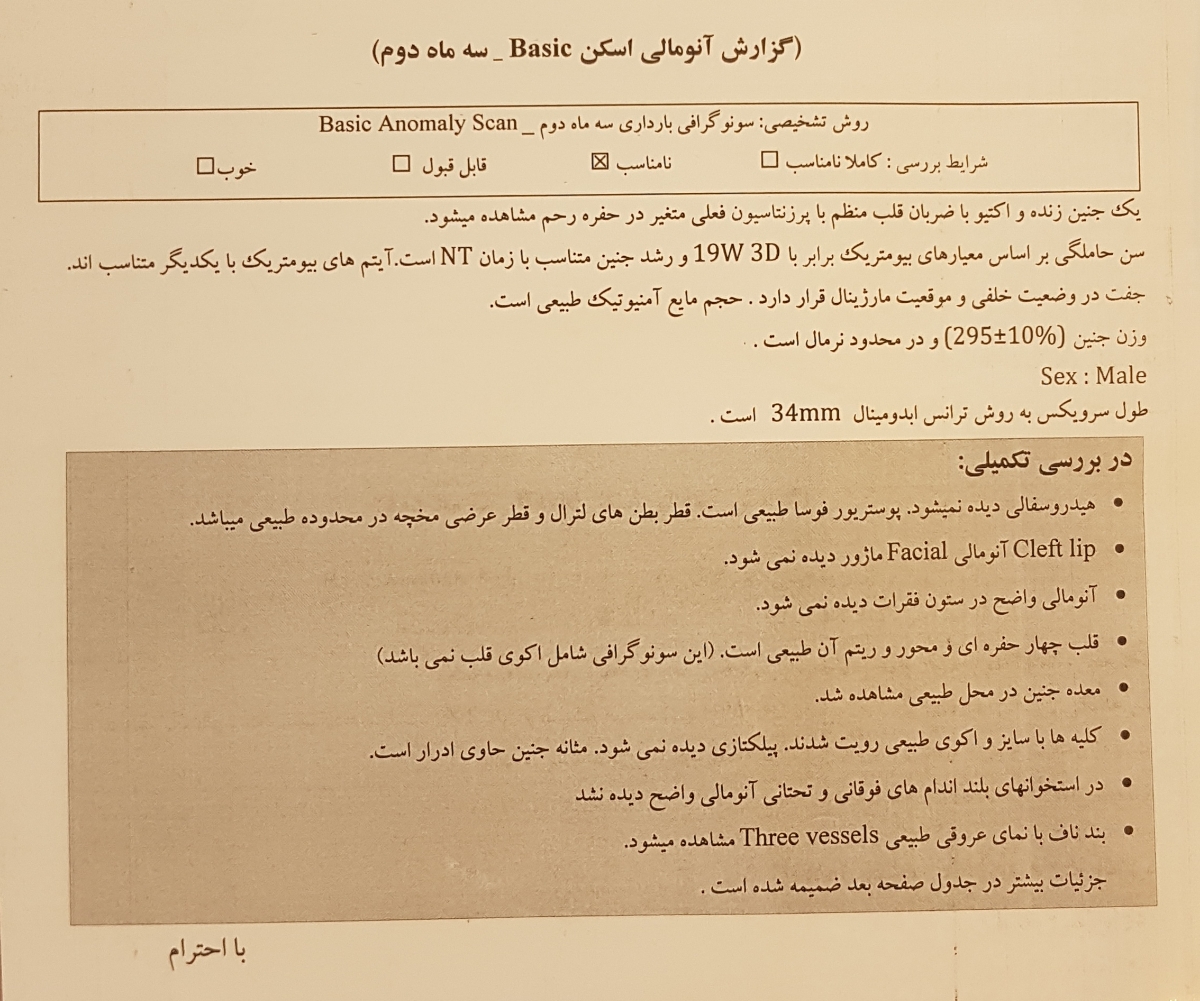 (گزارش آنومالی اسکن Basic _ سه ماه دوم)
روش تشخیصی: سونوگرافی بارداری سه ماه دوم _ Basic Anomaly Scan
شرایط بررسی : کاملا نامناسب ☐ نامناسب ☒ قابل قبول ☐ خوب ☐
یک جنین زنده و اکتیو با ضربان قلب منظم با پرزنتاسیون فعلی متغیر در حفره رحم مشاهده میشود.
سن حاملگی بر اساس معیارهای بیومتریک برابر با 19W 3D و رشد جنین متناسب با زمان NT است.آیتم های بیومتریک با یکدیگر متناسب اند.
جفت در وضعیت خلفی و موقعیت مارژینال قرار دارد . حجم مایع آمنیوتیک طبیعی است.
وزن جنین (295±10%) و در محدود نرمال است .
Sex : Male
طول سرویکس به روش ترانس ابدومینال 34mm است .
در بررسی تکمیلی:
• هیدروسفالی دیده نمیشود. پوستریور فوسا طبیعی است. قطر بطن های لترال و قطر عرضی مخچه در محدوده طبیعی میباشد.
• Cleft lip آنومالی Facial ماژور دیده نمی شود.
• آنومالی واضح در ستون فقرات دیده نمی شود.
• قلب چهار حفره ای و محور و ریتم آن طبیعی است. (این سونوگرافی شامل اکوی قلب نمی باشد)
• معده جنین در محل طبیعی مشاهده شد.
• کلیه ها با سایز و اکوی طبیعی رویت شدند. پیلکتازی دیده نمی شود. مثانه جنین حاوی ادرار است.
• در استخوانهای بلند اندام های فوقانی و تحتانی آنومالی واضح دیده نشد
• بند ناف با نمای عروقی طبیعی Three vessels مشاهده میشود.
جزئیات بیشتر در جدول صفحه بعد ضمیمه شده است .
با احترام